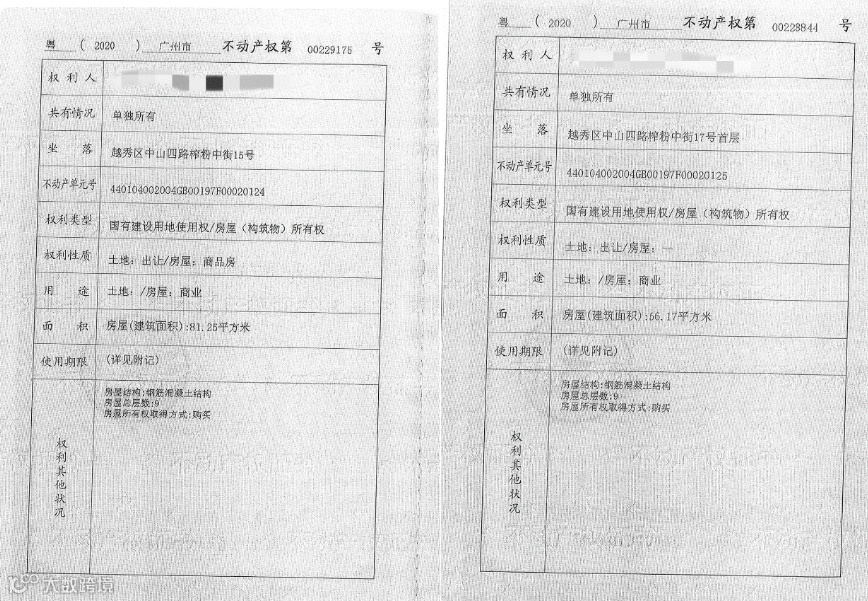 粤(2020)广州市不动产权第00229175号
权利人
共有情况 单独所有
坐落 越秀区中山四路榨粉中街15号
不动产单元号 440104002004GB00197F00020124
权利类型 国有建设用地使用权/房屋(构筑物)所有权
权利性质 土地:出让/房屋:商品房
用途 土地:/房屋:商业
面积 房屋(建筑面积):81.25平方米
使用期限 (详见附记)
权利其他状况
房屋结构:钢筋混凝土结构
房屋总层数:9
房屋所有权取得方式:购买
粤(2020)广州市不动产权第00228844号
权利人
共有情况 单独所有
坐落 越秀区中山四路榨粉中街17号首层
不动产单元号 440104002004GB00197F00020125
权利类型 国有建设用地使用权/房屋(构筑物)所有权
权利性质 土地:出让/房屋:一
用途 土地:/房屋:商业
面积 房屋(建筑面积):56.17平方米
使用期限 (详见附记)
权利其他状况
房屋结构:钢筋混凝土结构
房屋总层数:9
房屋所有权取得方式:购买
大数跨境